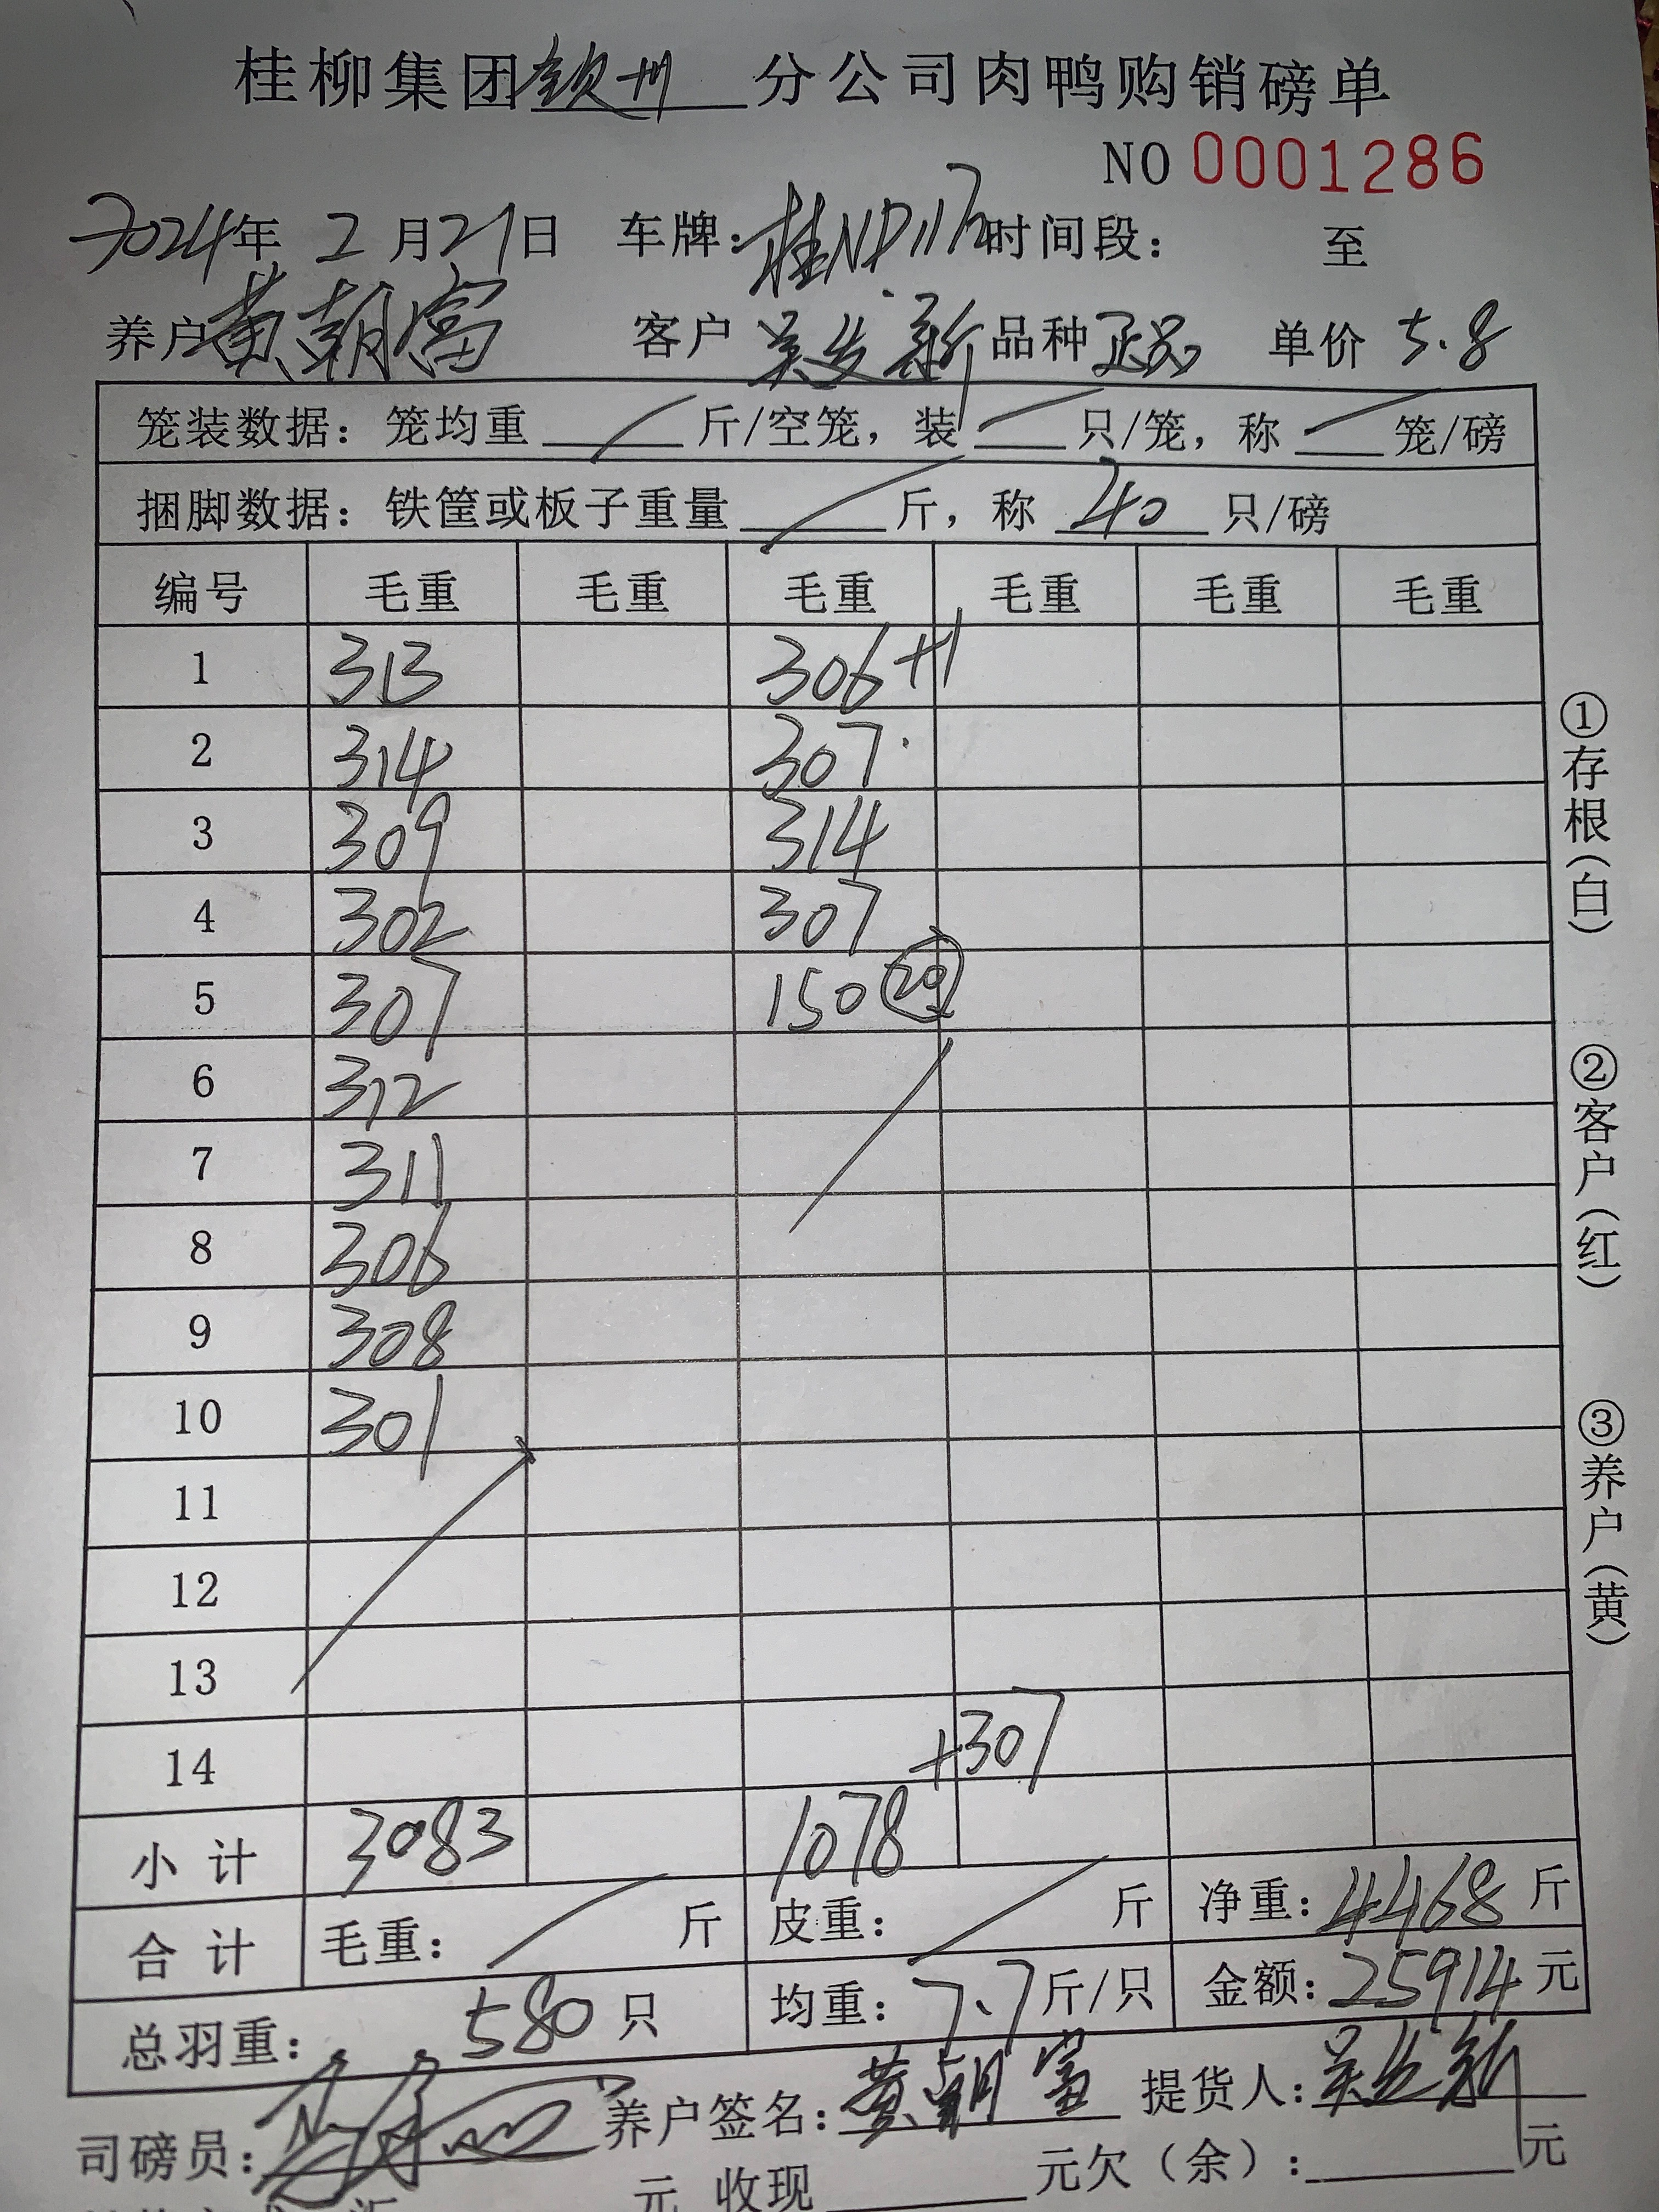 桂柳集团钦州分公司肉鸭购销磅单
NO 0001286
2024年 2月21日 车牌：桂ND1172 时间段： 至
养户 黄朝富 客户 吴发新 品种 正品 单价 5.8
笼装数据：笼均重 斤/空笼，装 只/笼，称 笼/磅
捆脚数据：铁筐或板子重量 斤，称 40 只/磅
编号 毛重 毛重 毛重 毛重 毛重 毛重
1 313 306+1
2 314 307
3 309 314
4 302 307
5 307 150 20
6 312
7 311
8 306
9 308
10 301
11
12
13
14 +307
小计 3083 1078
合计 毛重： 斤 皮重： 斤 净重：4468 斤
总羽重：580 只 均重：7.7 斤/只 金额：25914 元
司磅员： 养户签名：黄朝富 提货人：吴发新
元 收现 元欠（余）： 元
①存根（白） ②客户（红） ③养户（黄）